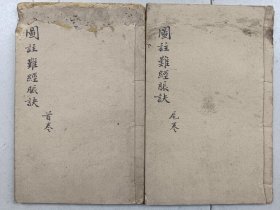 圖註難經脈訣
首卷
圖註難經脈訣
尾卷